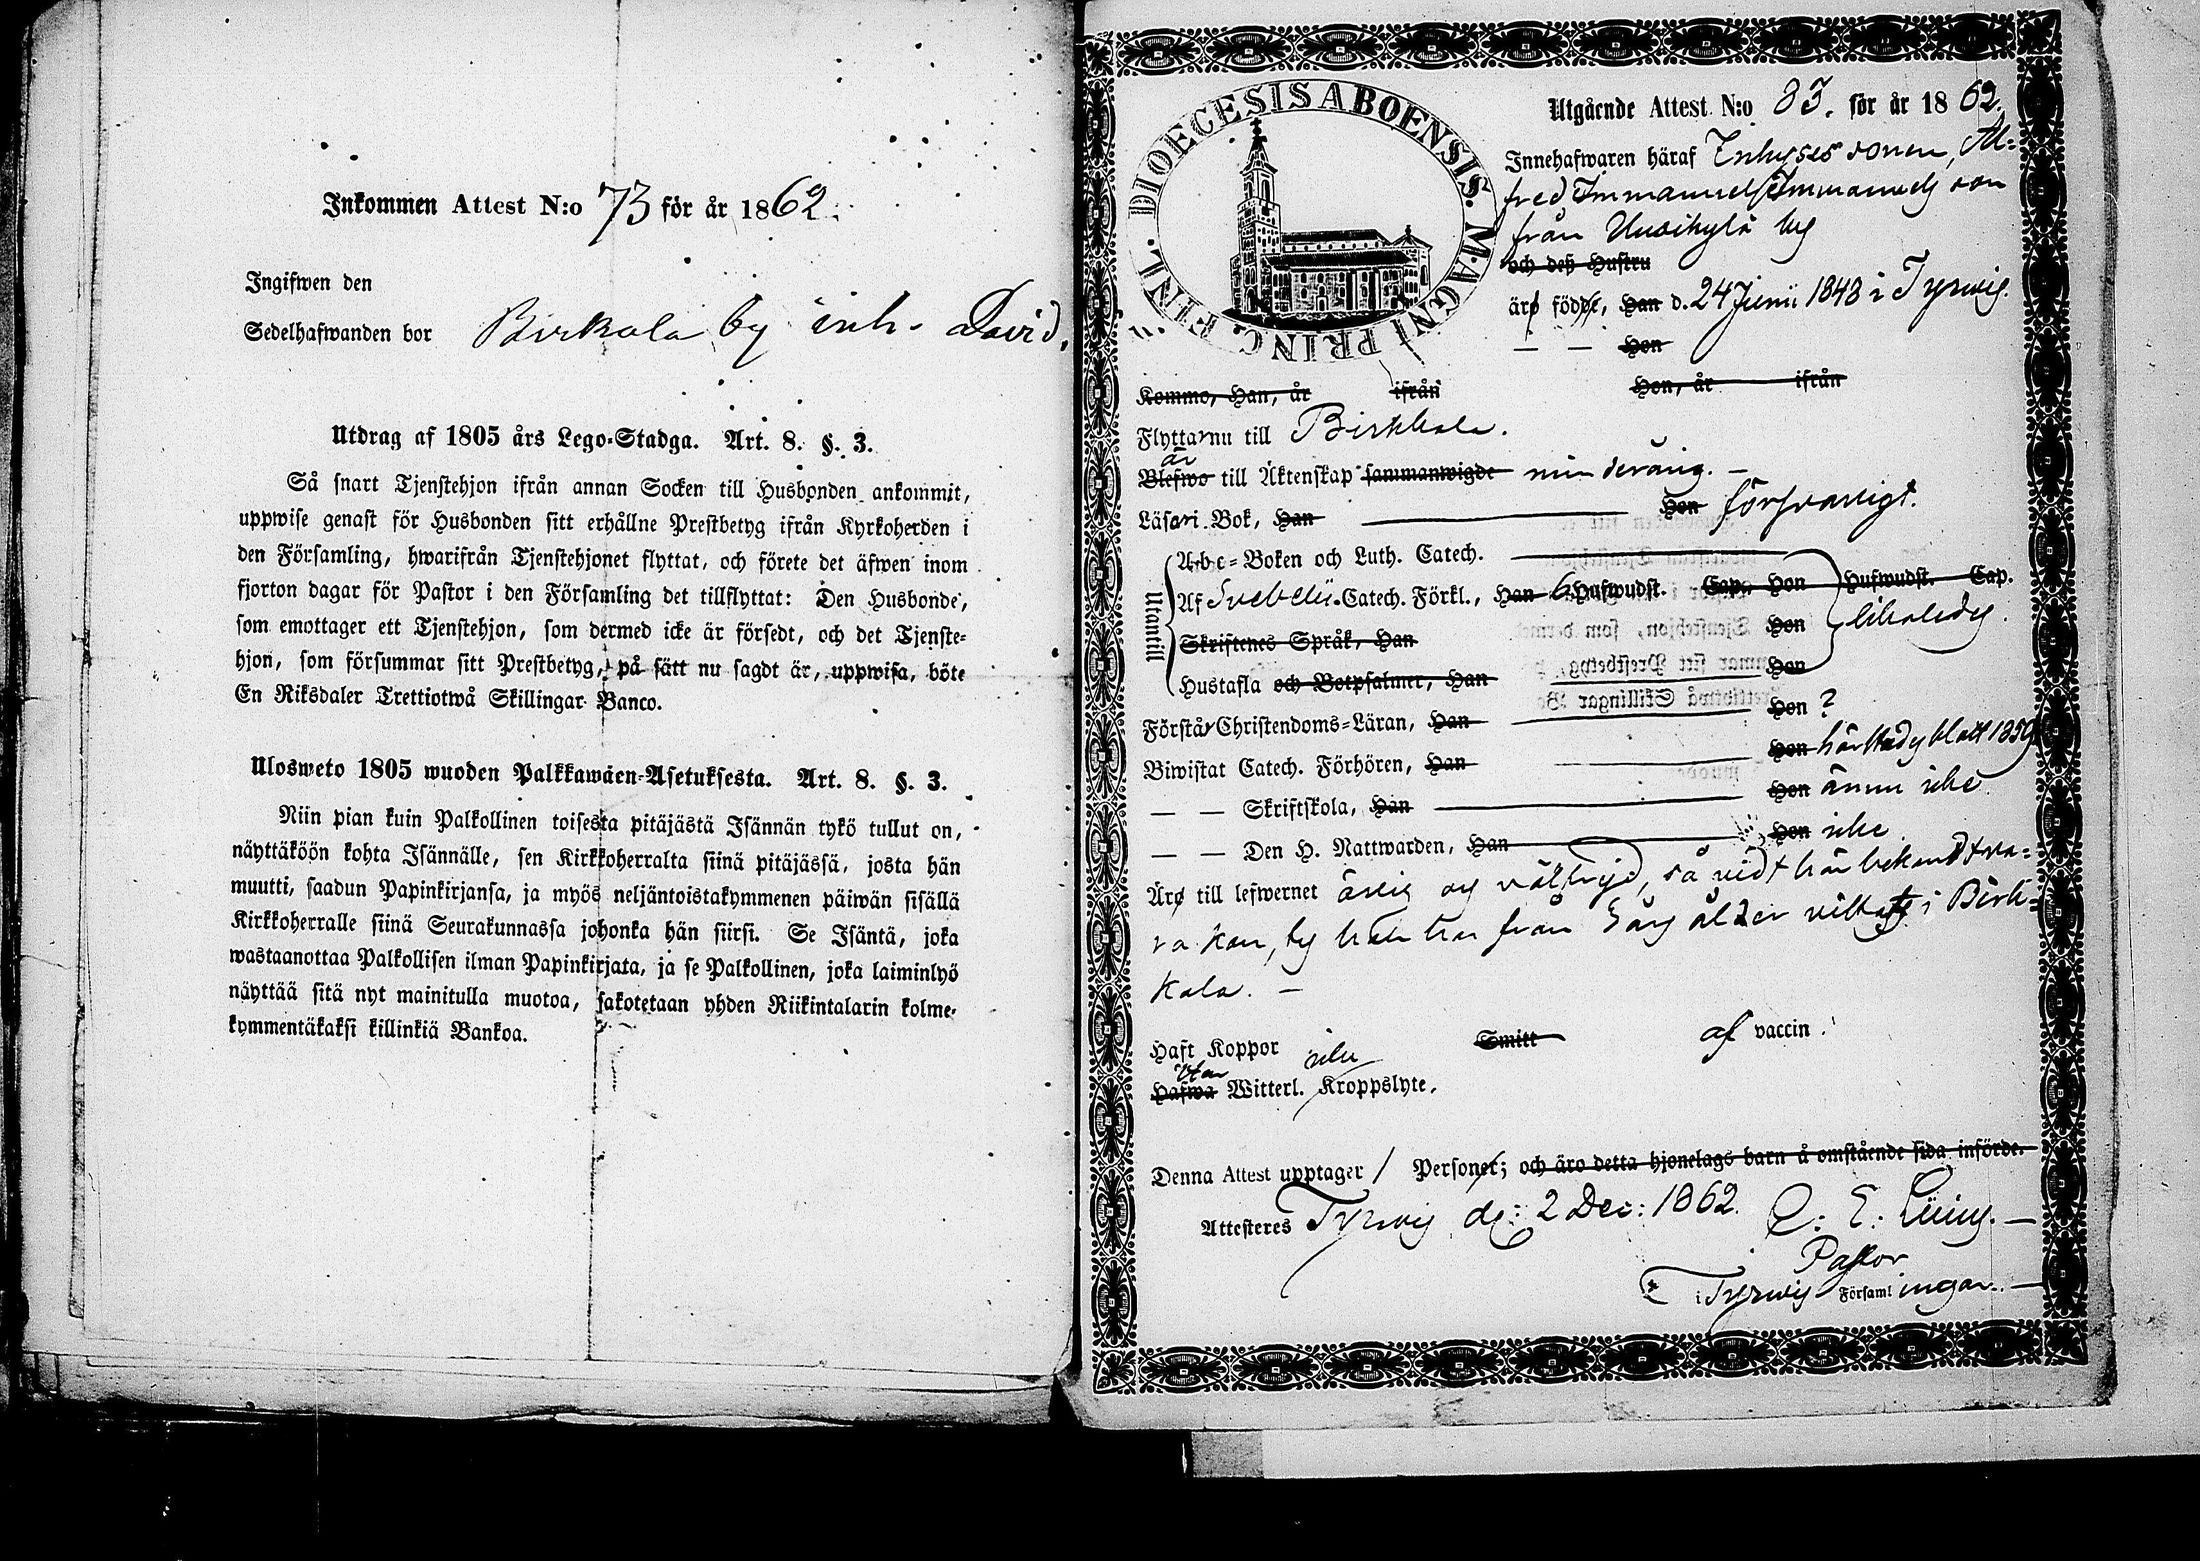 Inkommen Attest N:o 73 för år 1862.
Ingifwen den
Sedelhafwanden bor Birkala by inh. David.
Utdrag af 1805 års Lego-Stadga. Art. 8. §. 3.
Så snart Tjenstehjon ifrån annan Socken till Husbonden ankommit,
uppwise genast för Husbonden sitt erhållne Prestbetyg ifrån Kyrkoherden i
den Församling, hwarifrån Tjenstehjonet flyttat, och förete det äfwen inom
fjorton dagar för Pastor i den Församling det tillflyttat: Den Husbonde,
som emottager ett Tjenstehjon, som dermed icke är försedt, och det Tjenste-
hjon, som försummar sitt Prestbetyg, på sätt nu sagdt är, uppwisa, böte
En Riksdaler Trettiotwå Skillingar Banco.
Ulosweto 1805 wuoden Palkkawäen-Asetuksesta. Art. 8. §. 3.
Niin pian kuin Palkollinen toisesta pitäjästä Isännän tykö tullut on,
näyttäköön kohta Isännälle, sen Kirkkoherralta siinä pitäjässä, josta hän
muutti, saadun Papinkirjansa, ja myös neljäntoistakymmenen päiwän sisällä
Kirkkoherralle siinä Seurakunnassa johonka hän siirsi. Se Isäntä, joka
wastaanottaa Palkollisen ilman Papinkirjata, ja se Palkollinen, joka laiminlyö
näyttää sitä nyt mainitulla muotoa, sakotetaan yhden Riikintalarin kolme-
kymmentäkaksi killinkiä Bankoa.
DIOECESIS ABOENSIS. MAGNI PRINC. FINL.
Utgående Attest N:o 83. för år 1862.
Innehafwaren häraf Inhyses sonen, Al-
fred Immanuel Immanuels son
från Uusikylä by
och deß Hustru
äro födde, Han d. 24 Junii 1848 i Tyrwis.
— — Hon
Kommo, Han, år ifrån Hon, år ifrån
Flyttar nu till Birkkala.
är
Blefwo till Äktenskap sammanwigde minderårig. —
Läsa i Bok, Han Hon försvarligt.
Utantill
Abc-Boken och Luth. Catech.
Af Svebelii Catech. Förkl., Han 6 Hufwudst. Cap. Hon Hufwudst. Cap.
Skriftenes Språk, Han Hon
Hustafla och Botpsalmer, Han Hon
Förstår Christendoms-Läran, Han Hon ?
Biwistat Catech. Förhören, Han Hon 1859
— — Skriftskola, Han Hon ännu icke
— — Den H. Nattwarden, Han Hon icke.
Äro till lefwernet ärlig och välfrejd, så vidt här bekant va-
ra kan, ty han har från 5 årg ålder vistats i Birk-
kala. —
Haft Koppor icke Smitt af vaccin.
utan
Hafwa Witterl. Kroppslyte.
Denna Attest upptager 1 Personer; och äro detta hjonelags barn å omstående sida införde.
Attesteres Tyrwis d. 2 Dec: 1862.
Pastor
i Tyrwis Församlingar. —